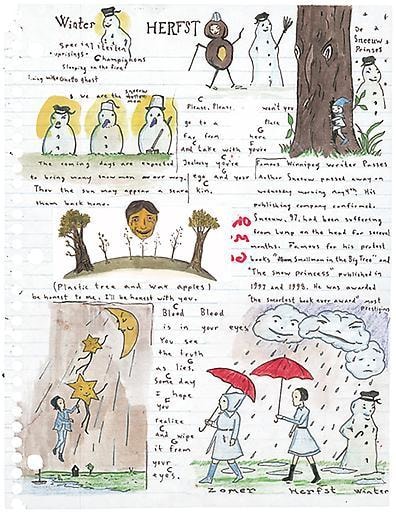 Winter
HERFST
Special isten
"uprisings" Champignons
Sleeping on the fire!
Living with Ghosts that
De
Sneeuw
Prinses
We are the sneeuw
C
Please, Please, won't you
go to a place
far from years
and take with yours
C
Jealousy
eye your
C
The coming days are expected
to bring many snow men our way.
Then the sun may appear a
kin.
them back home.
Famous Winnipeg Writer Passes
Arthur Sneeuw passed away on
wednesday morning His
publishing company confirmed.
Sneeuw, 97, had been suffering
from Lump on the head for several
months. Famous for his protest
books "Mom Smallman in the Big Tree" and
"The Snow princess" published in
1997 and 1998. He was awarded
"the Smartest book ever award" most
prestigious
(Plastic tree and wax apples)
be honest to me, I'll be honest with you.
C
Blood Blood
G
is in your eyes
You see
the truth
G
as lies.
Some day
I hope
you
realize
C
and wipe
G
it from
your
C
eyes.
Zomer Herfst Winter